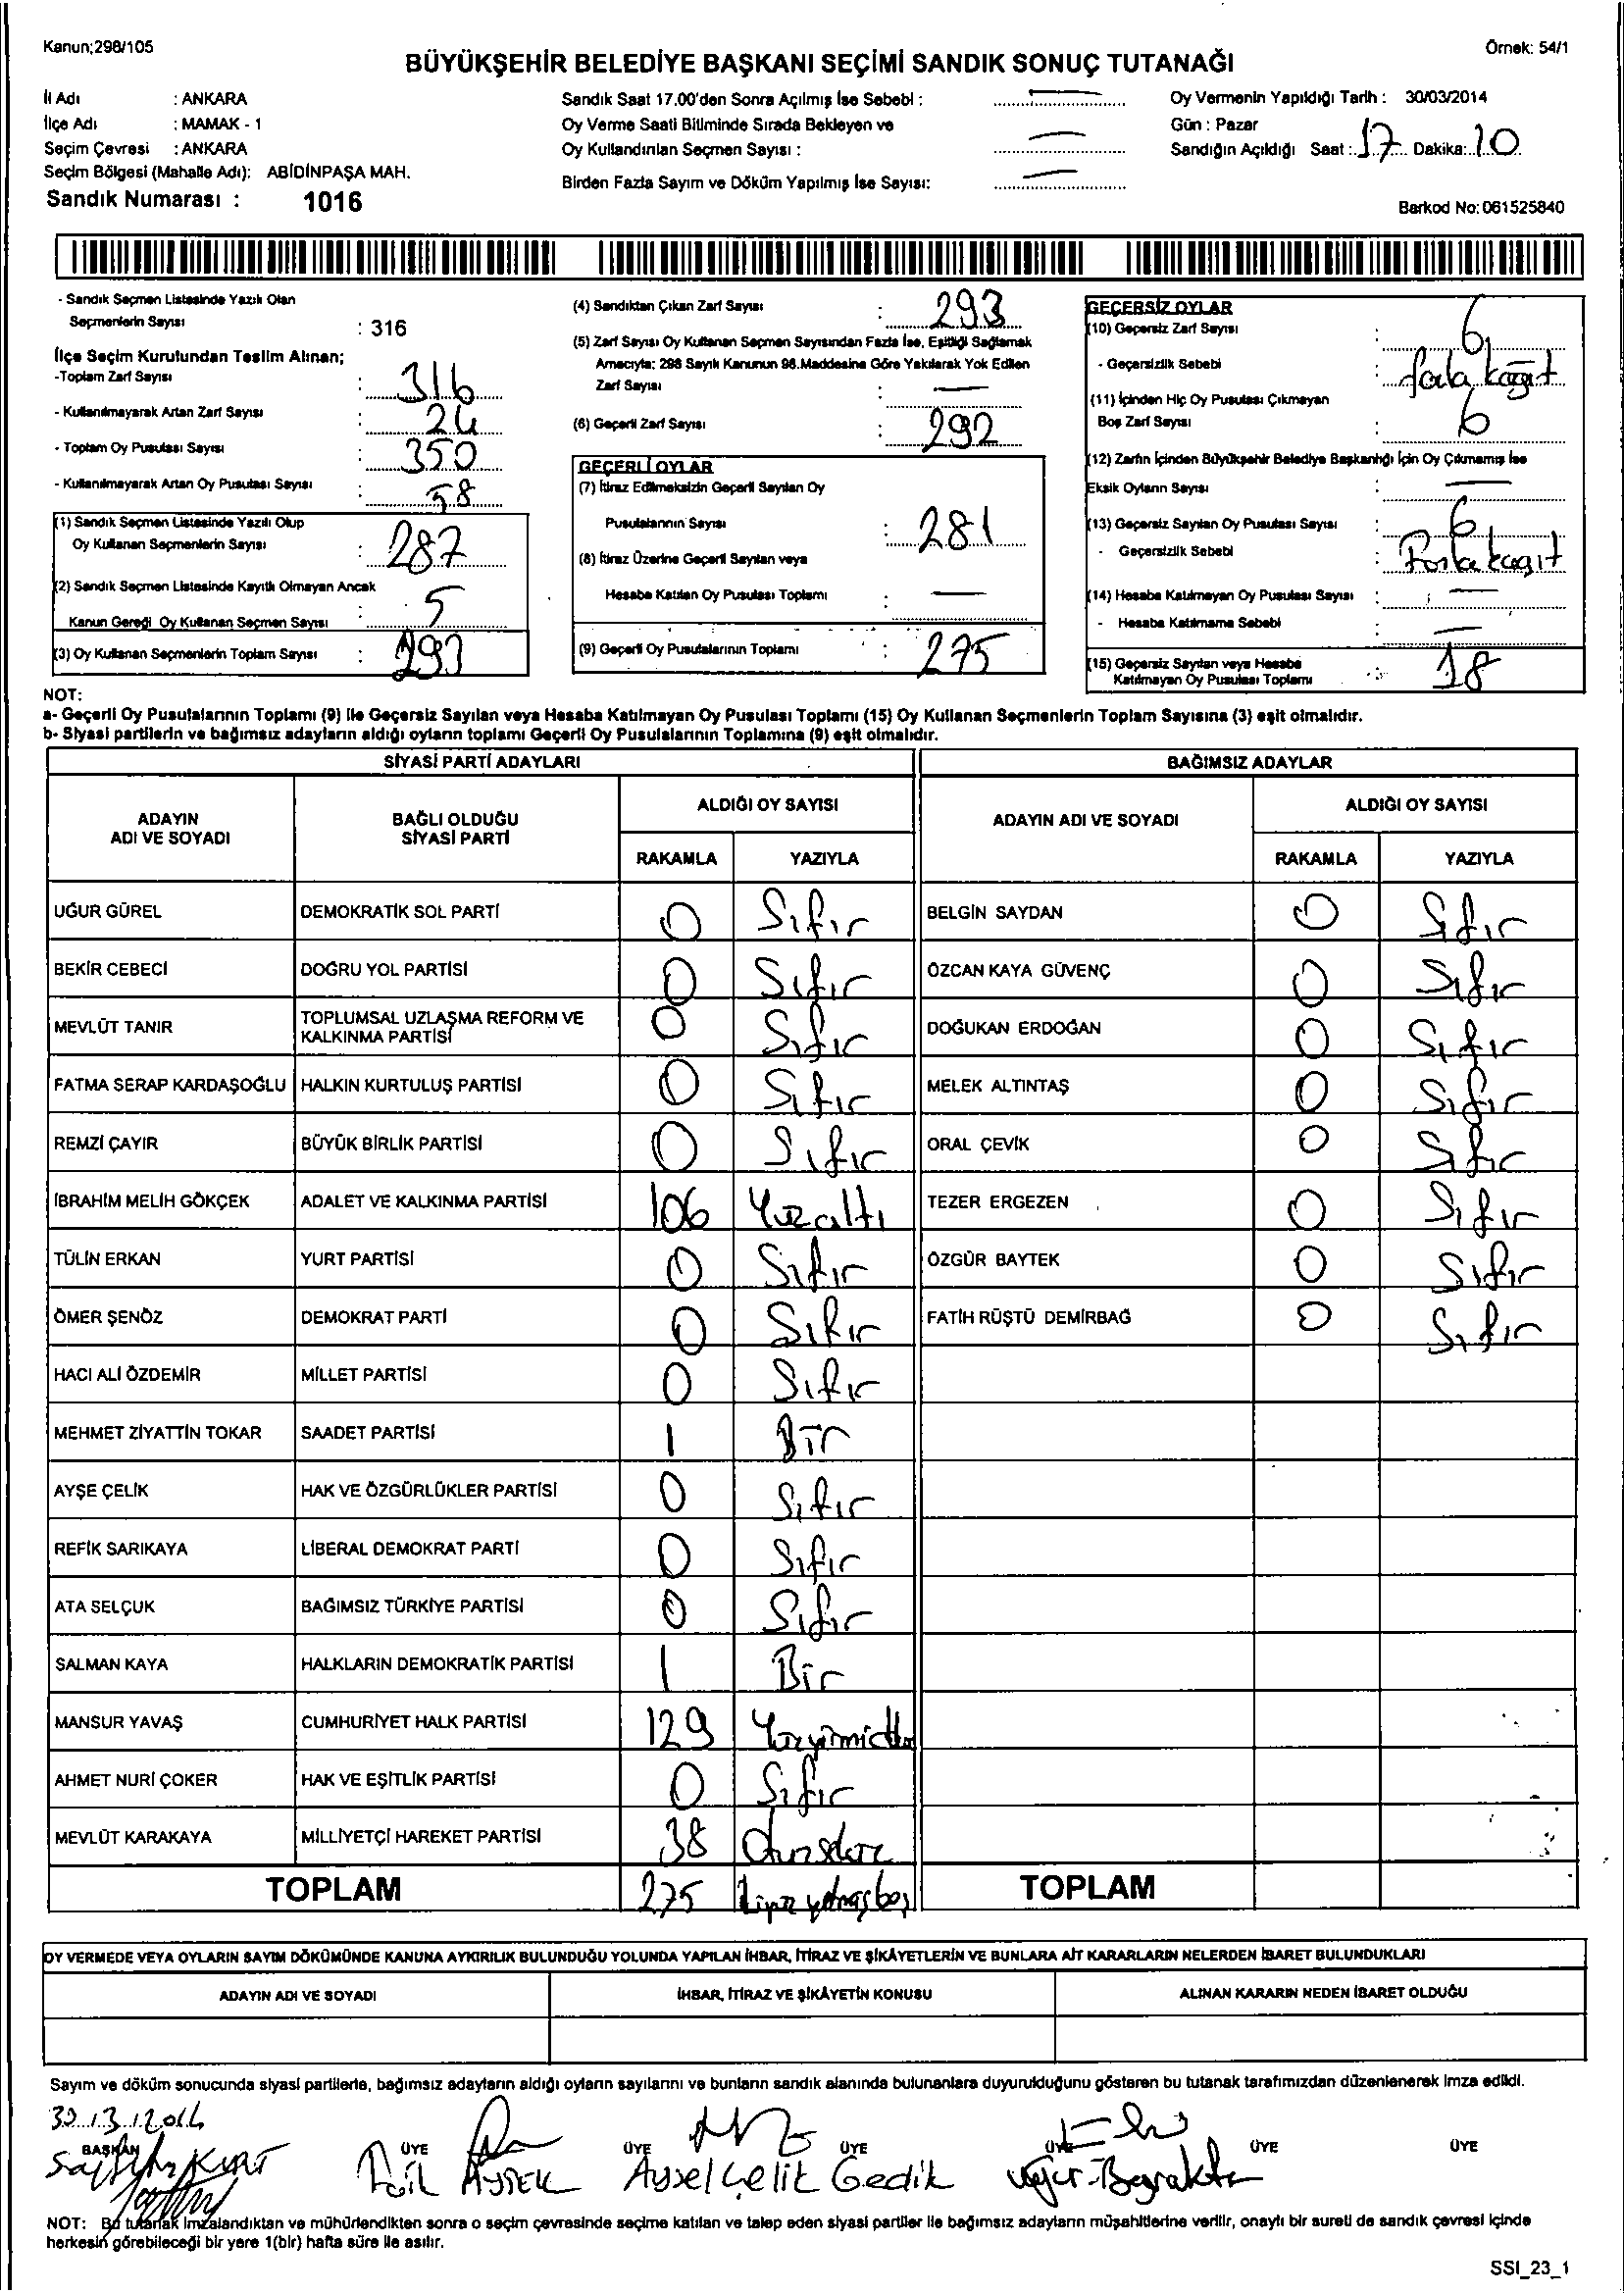 Kanun;298/105
Örnek: 54/1
BÜYÜKŞEHİR BELEDİYE BAŞKANI SEÇİMİ SANDIK SONUÇ TUTANAĞI
İl Adı : ANKARA
İlçe Adı : MAMAK - 1
Seçim Çevresi : ANKARA
Seçim Bölgesi (Mahalle Adı): ABİDİNPAŞA MAH.
Sandık Numarası : 1016
Sandık Saat 17.00'den Sonra Açılmış İse Sebebi : —
Oy Verme Saati Bitiminde Sırada Bekleyen ve
Oy Kullandırılan Seçmen Sayısı : —
Birden Fazla Sayım ve Döküm Yapılmış İse Sayısı: —
Oy Vermenin Yapıldığı Tarih : 30/03/2014
Gün : Pazar
Sandığın Açıldığı Saat : 17 Dakika: 10
Barkod No: 061525840
- Sandık Seçmen Listesinde Yazılı Olan
Seçmenlerin Sayısı : 316
İlçe Seçim Kurulundan Teslim Alınan;
-Toplam Zarf Sayısı : 316
- Kullanılmayarak Artan Zarf Sayısı : 24
- Toplam Oy Pusulası Sayısı : 350
- Kullanılmayarak Artan Oy Pusulası Sayısı : 58
(1) Sandık Seçmen Listesinde Yazılı Olup
Oy Kullanan Seçmenlerin Sayısı : 287
(2) Sandık Seçmen Listesinde Kayıtlı Olmayan Ancak
Kanun Gereği Oy Kullanan Seçmen Sayısı : 5
(3) Oy Kullanan Seçmenlerin Toplam Sayısı : 293
(4) Sandıktan Çıkan Zarf Sayısı : 293
(5) Zarf Sayısı Oy Kullanan Seçmen Sayısından Fazla İse, Eşitliği Sağlamak
Amacıyla; 298 Sayılı Kanunun 98.Maddesine Göre Yakılarak Yok Edilen
Zarf Sayısı : —
(6) Geçerli Zarf Sayısı : 292
GEÇERLİ OYLAR
(7) İtiraz Edilmeksizin Geçerli Sayılan Oy
Pusulalarının Sayısı : 281
(8) İtiraz Üzerine Geçerli Sayılan veya
Hesaba Katılan Oy Pusulası Toplamı : —
(9) Geçerli Oy Pusulalarının Toplamı : 275
GEÇERSİZ OYLAR
(10) Geçersiz Zarf Sayısı : 6
- Geçersizlik Sebebi : fazla kağıt
(11) İçinden Hiç Oy Pusulası Çıkmayan
Boş Zarf Sayısı : 6
(12) Zarfın İçinden Büyükşehir Belediye Başkanlığı İçin Oy Çıkmamış İse
Eksik Oyların Sayısı : —
(13) Geçersiz Sayılan Oy Pusulası Sayısı : 6
- Geçersizlik Sebebi : Fazla kağıt
(14) Hesaba Katılmayan Oy Pusulası Sayısı : —
- Hesaba Katılmama Sebebi : —
(15) Geçersiz Sayılan veya Hesaba
Katılmayan Oy Pusulası Toplamı : 18
NOT:
a- Geçerli Oy Pusulalarının Toplamı (9) ile Geçersiz Sayılan veya Hesaba Katılmayan Oy Pusulası Toplamı (15) Oy Kullanan Seçmenlerin Toplam Sayısına (3) eşit olmalıdır.
b- Siyasi partilerin ve bağımsız adayların aldığı oyların toplamı Geçerli Oy Pusulalarının Toplamına (9) eşit olmalıdır.
SİYASİ PARTİ ADAYLARI BAĞIMSIZ ADAYLAR
ADAYIN ADI VE SOYADI BAĞLI OLDUĞU SİYASİ PARTİ ALDIĞI OY SAYISI ADAYIN ADI VE SOYADI ALDIĞI OY SAYISI
RAKAMLA YAZIYLA RAKAMLA YAZIYLA
UĞUR GÜREL DEMOKRATİK SOL PARTİ 0 Sıfır BELGİN SAYDAN 0 Sıfır
BEKİR CEBECİ DOĞRU YOL PARTİSİ 0 Sıfır ÖZCAN KAYA GÜVENÇ 0 Sıfır
MEVLÜT TANIR TOPLUMSAL UZLAŞMA REFORM VE KALKINMA PARTİSİ 0 Sıfır DOĞUKAN ERDOĞAN 0 Sıfır
FATMA SERAP KARDAŞOĞLU HALKIN KURTULUŞ PARTİSİ 0 Sıfır MELEK ALTINTAŞ 0 Sıfır
REMZİ ÇAYIR BÜYÜK BİRLİK PARTİSİ 0 Sıfır ORAL ÇEVİK 0 Sıfır
İBRAHİM MELİH GÖKÇEK ADALET VE KALKINMA PARTİSİ 106 Yüzaltı TEZER ERGEZEN 0 Sıfır
TÜLİN ERKAN YURT PARTİSİ 0 Sıfır ÖZGÜR BAYTEK 0 Sıfır
ÖMER ŞENÖZ DEMOKRAT PARTİ 0 Sıfır FATİH RÜŞTÜ DEMİRBAĞ 0 Sıfır
HACI ALİ ÖZDEMİR MİLLET PARTİSİ 0 Sıfır
MEHMET ZİYATTİN TOKAR SAADET PARTİSİ 1 Bir
AYŞE ÇELİK HAK VE ÖZGÜRLÜKLER PARTİSİ 0 Sıfır
REFİK SARIKAYA LİBERAL DEMOKRAT PARTİ 0 Sıfır
ATA SELÇUK BAĞIMSIZ TÜRKİYE PARTİSİ 0 Sıfır
SALMAN KAYA HALKLARIN DEMOKRATİK PARTİSİ 1 Bir
MANSUR YAVAŞ CUMHURİYET HALK PARTİSİ 129
AHMET NURİ ÇOKER HAK VE EŞİTLİK PARTİSİ 0 Sıfır
MEVLÜT KARAKAYA MİLLİYETÇİ HAREKET PARTİSİ 38
TOPLAM 275 TOPLAM
OY VERMEDE VEYA OYLARIN SAYIM DÖKÜMÜNDE KANUNA AYKIRILIK BULUNDUĞU YOLUNDA YAPILAN İHBAR, İTİRAZ VE ŞİKÂYETLERİN VE BUNLARA AİT KARARLARIN NELERDEN İBARET BULUNDUKLARI
ADAYIN ADI VE SOYADI İHBAR, İTİRAZ VE ŞİKÂYETİN KONUSU ALINAN KARARIN NEDEN İBARET OLDUĞU
Sayım ve döküm sonucunda siyasi partilerle, bağımsız adayların aldığı oyların sayılarını ve bunların sandık alanında bulunanlara duyurulduğunu gösteren bu tutanak tarafımızdan düzenlenerek imza edildi.
30/3/2014
BAŞKAN ÜYE ÜYE ÜYE ÜYE ÜYE ÜYE
Kurt Aysel Çelik Gedik Uğur Bayraktar
NOT: Bu tutanak imzalandıktan ve mühürlendikten sonra o seçim çevresinde seçime katılan ve talep eden siyasi partiler ile bağımsız adayların müşahitlerine verilir, onaylı bir sureti de sandık çevresi içinde
herkesin görebileceği bir yere 1(bir) hafta süre ile asılır.
SSI_23_1